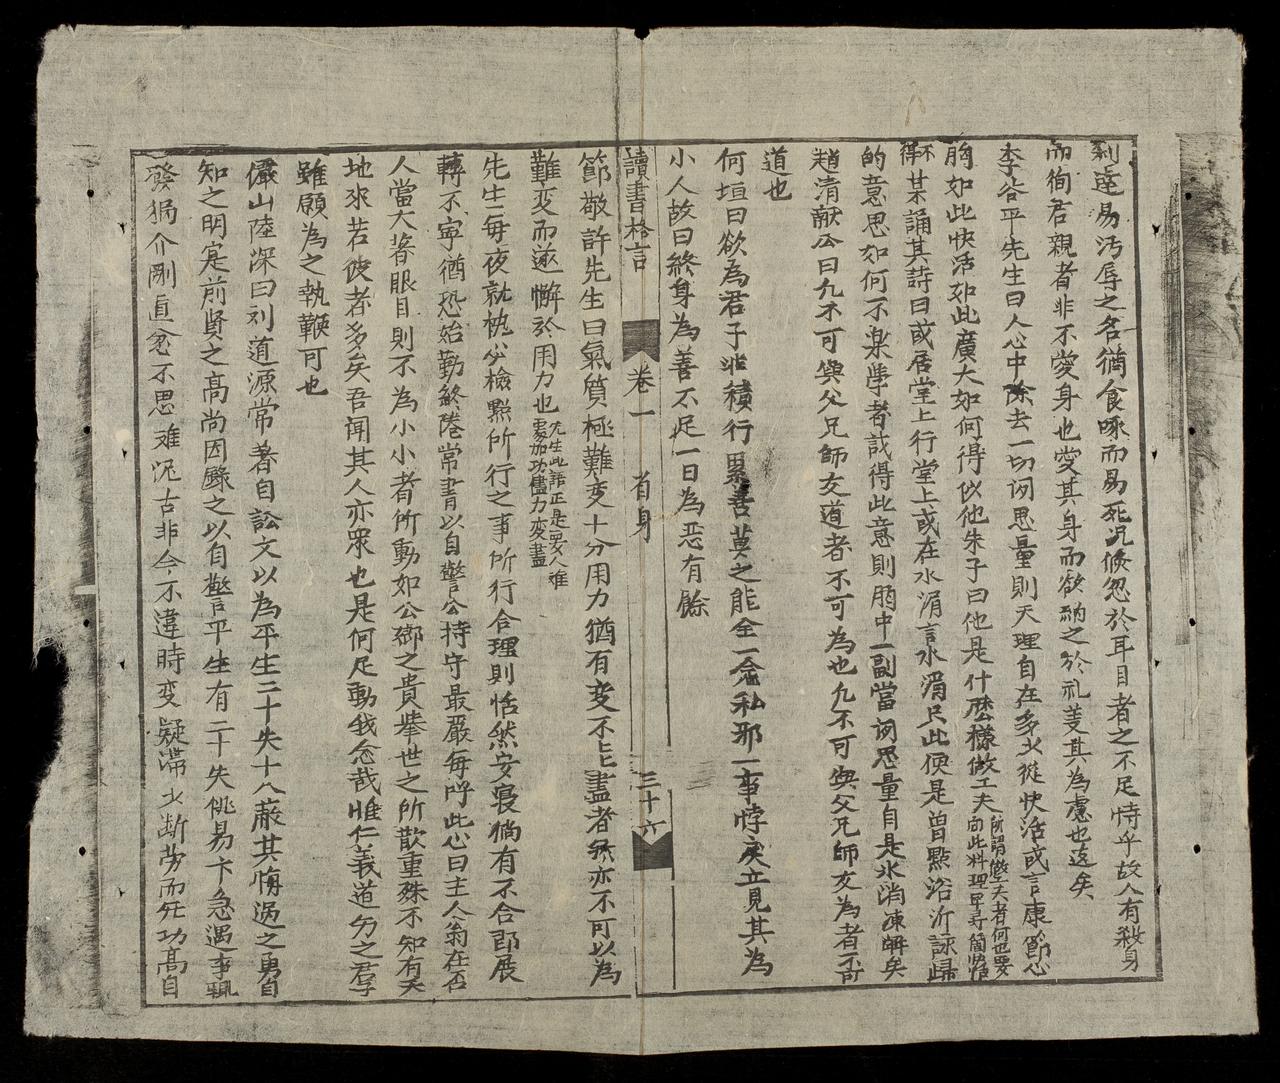 刹遠易汚辱之名猶食啄而易死況倐忽於耳目者之不足恃乎故人有殺身
而狥君親者非不愛身也愛其身而欲納之於礼羙其為慮也遠矣
李谷平先生曰人心中除去一切閑思量則天理自在多少從快活或言康節心
胸如此快活如此廣大如何得似他朱子曰他是什麽様做工夫所謂做工夫者何也要向此料理早尋箇
不得某誦其詩曰或居堂上行堂上或在水湄言水湄只此便是曾點浴沂詠歸
的意思如何不楽學者誠得此意則胸中一副當閑思量自是氷消凍觧矣
趙清献公曰凢不可與父兄師友道者不可為也凢不可與父兄師友為者不可
道也
何垣曰欲為君子非積行累善莫之能全一念私邪一事悖戾立見其為
小人故曰終身為善不足一日為惡有餘
讀書格言 卷一 省身 三十六
節敬許先生曰氣質極難変十分用力猶有変不能盡者然亦不可以為
難変而遂懈於用力也先生此語正是要人難䖏加功儘力変盡
先生毎夜就枕必檢㸃所行之事所行合理則恬然安寝倘有不合即展
轉不寧猶恐始勤終惓常書以自警公持守最嚴毎呼此心曰主人翁在否
人當大著眼目則不為小小者所動如公卿之貴舉世之所歆重殊不知有天
地來若彼者多矣吾聞其人亦衆也是何足動我念哉惟仁義道徳之君子
雖願為之執鞭可也
儼山陸深曰刘道源常著自訟文以為平生二十失十八蔽其悔過之勇自
知之明寔前賢之高尚因錄之以自警平生有二十失佻易卞急遇事輒
發狷介剛直忿不思难況古非今不違時変疑滯少断劳而无功高自